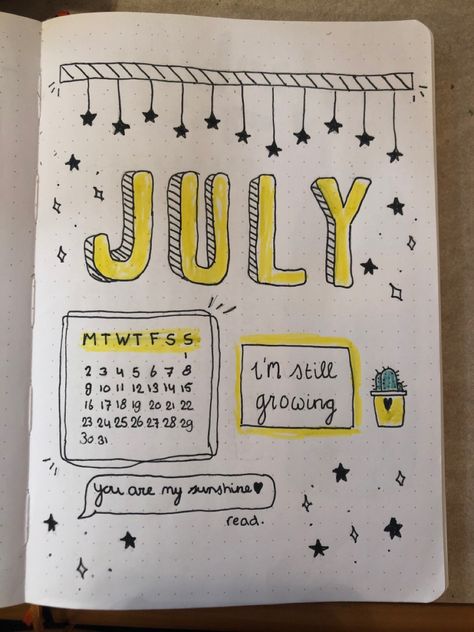 JULY
M T W T F S S
1
2 3 4 5 6 7 8
9 10 11 12 13 14 15
16 17 18 19 20 21 22
23 24 25 26 27 28 29
30 31
i'm still
growing
you are my sunshine♥
read.